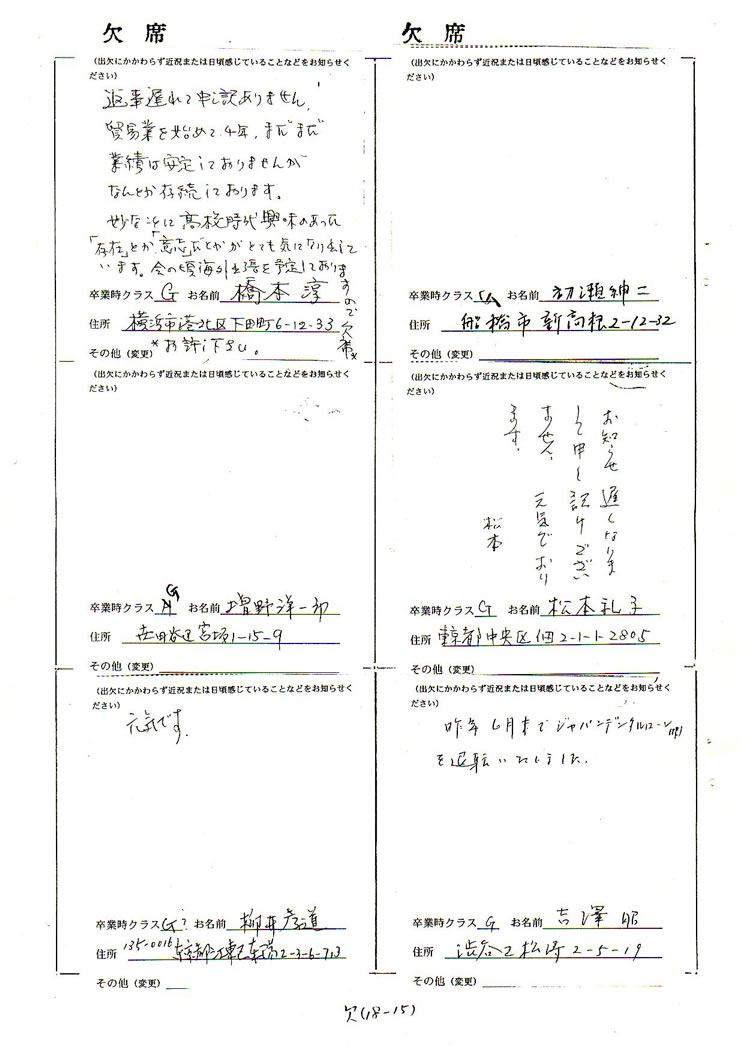 欠席
(出欠にかかわらず近況または日頃感じていることなどをお知らせく
ださい)
返事遅れて申し訳ありません。
貿易業を始めて4年、まだまだ
業績は安定しておりませんが
なんとか存続しております。
妙なことに高校時代興味のあった
「存在」とか「意志」とかがとても気になり出して
います。今の頃海外出張を予定しておりま
すので欠席
卒業時クラス G お名前 橋本 淳
住所 横浜市港北区下田町6-12-33
*お許し下さい。
その他(変更)
欠席
(出欠にかかわらず近況または日頃感じていることなどをお知らせく
ださい)
卒業時クラス お名前 初瀬紳二
住所 船橋市新高根2-12-32
その他(変更)
(出欠にかかわらず近況または日頃感じていることなどをお知らせく
ださい)
卒業時クラス G お名前 増野洋一郎
住所 世田谷区宮坂1-15-9
その他(変更)
(出欠にかかわらず近況または日頃感じていることなどをお知らせく
ださい)
お知らせ 遅くなりま
して申し訳けござい
ません、元気でおり
ます。
松本
卒業時クラス G お名前 松本礼子
住所 東京都中央区佃2-1-1-2805
その他(変更)
(出欠にかかわらず近況または日頃感じていることなどをお知らせく
ださい)
元気です。
卒業時クラス G? お名前 柳井彦道
住所 135-0016 東京都江東区東陽2-3-6-713
その他(変更)
(出欠にかかわらず近況または日頃感じていることなどをお知らせく
ださい)
昨年6月末でジャパンデンタルローン
を退転いたしました。
卒業時クラス G お名前 吉澤 昭
住所 渋谷区松濤2-5-19
その他(変更)
欠(18-15)